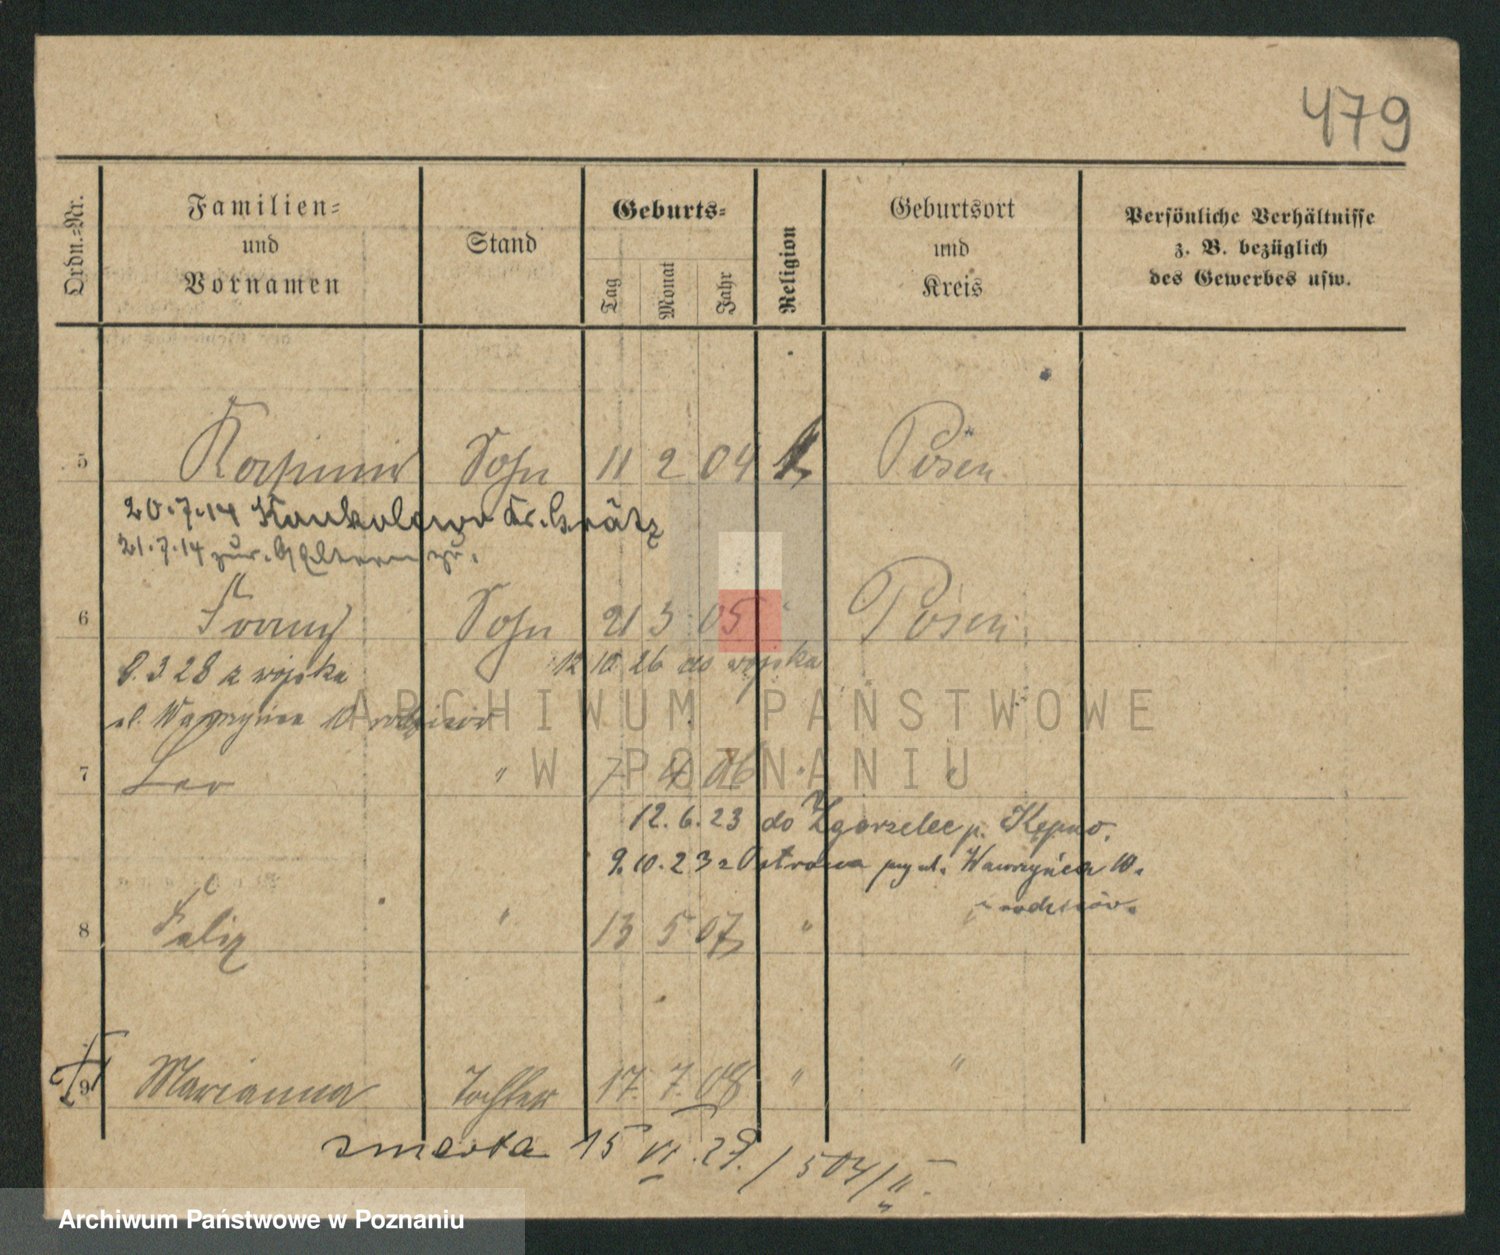 479
Ordn.-Nr.
Familien-
und
Vornamen
Stand
Geburts-
Tag
Monat
Jahr
Religion
Geburtsort
und
Kreis
Persönliche Verhältnisse
z. B. bezüglich
des Gewerbes usw.
5 Kasimir Sohn 11 2 04 k Posen
20.7.14 Kr. Grätz
21.7.14 zur. Eltern zu.
6 Franz Sohn 21 3 05 " Posen
8.3 28 z wojska 12 10 26 do wojska
ul. Wawrzyńca 10 rodziców
ARCHIWUM PAŃSTWOWE
W POZNANIU
7 Leo " 7 4 06 " "
12.6.23 do Zgorzelec p. Kępno.
9.10.23 z Ostrowa ul. Wawrzyńca 10.
u rodziców.
8 Felix " 13 5 07 "
9 Marianna Tochter 17. 7. 08 " "
zmarła 15 VI. 29. / 504/II.
Archiwum Państwowe w Poznaniu